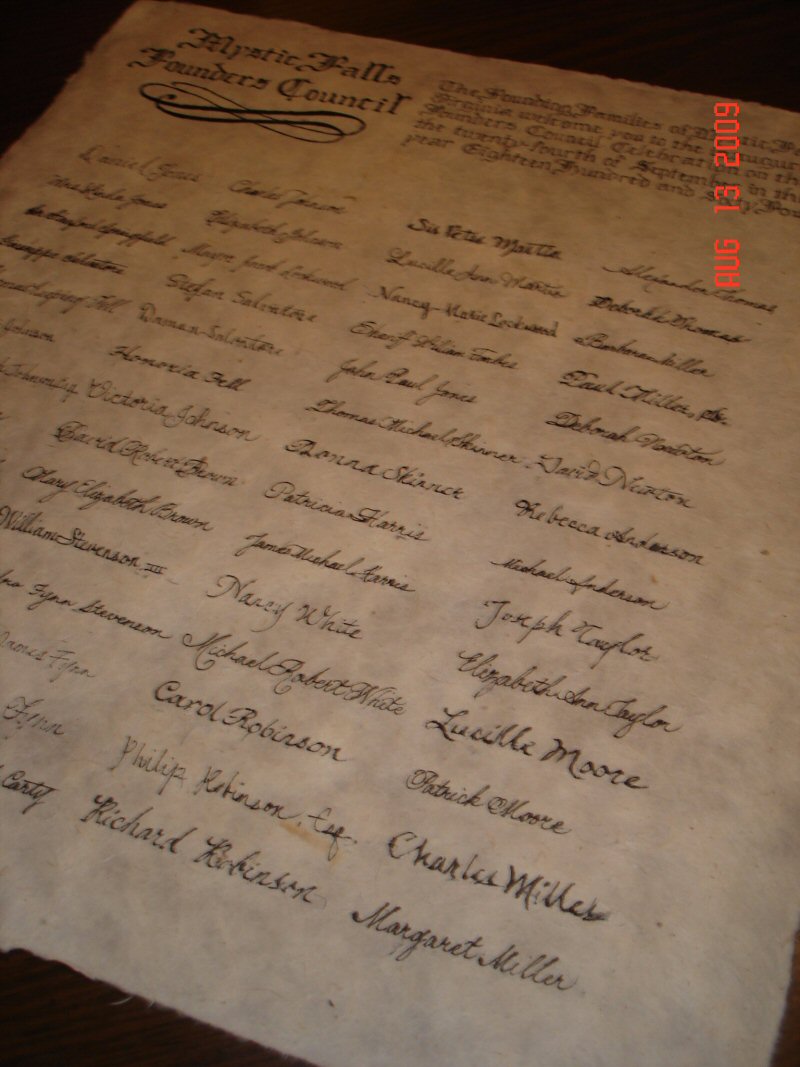 Mystic Falls
Founders Council
The Founding Families of Mystic
Virginia welcome you to the
Founders Council Celebration on the
the twenty-fourth of September in the
year Eighteen Hundred and Sixty Four
AUG 13 2009
Daniel Jones
Jones
Giuseppe Salvatore
Fell
Johnson
David Robert Brown
Mary Elizabeth Brown
William Stevenson III
Fynn Stevenson
James Fynn
Fynn
Carty
Charles Johnson
Elizabeth Johnson
Mayor Lockwood
Stefan Salvatore
Damon Salvatore
Honoria Fell
Victoria Johnson
Sir Peter Martin
Lucille Ann Martin
Nancy Marie Lockwood
Sheriff William Forbes
John Paul Jones
Thomas Michael Skinner
Donna Skinner
Patricia Harris
James Michael Harris
Nancy White
Michael Robert White
Carol Robinson
Philip Robinson, Esq.
Richard Robinson
Alexander Thomas
Deborah Thomas
Barbara Miller
Paul Miller, Sr.
Deborah Newton
David Newton
Rebecca Anderson
Michael Anderson
Joseph Taylor
Elizabeth Ann Taylor
Lucille Moore
Patrick Moore
Charles Miller
Margaret Miller